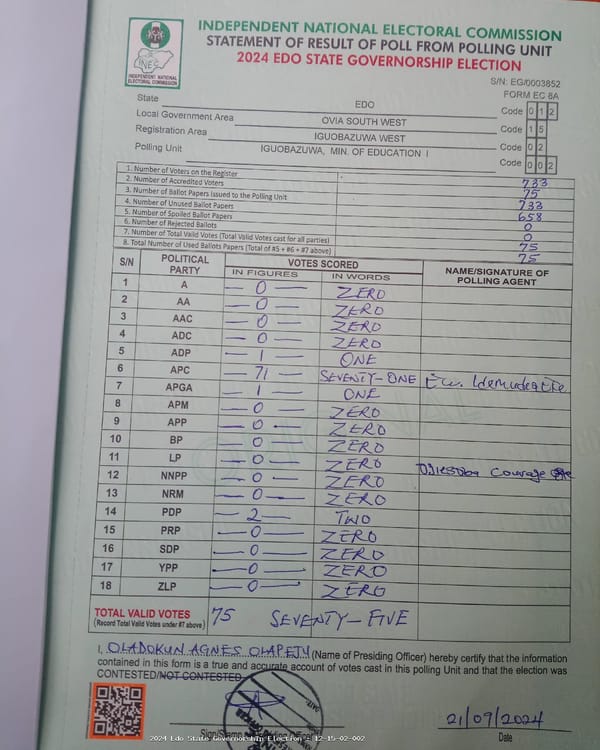 INDEPENDENT NATIONAL ELECTORAL COMMISSION
STATEMENT OF RESULT OF POLL FROM POLLING UNIT
2024 EDO STATE GOVERNORSHIP ELECTION
INEC
INDEPENDENT NATIONAL
ELECTORAL COMMISSION
S/N: EG/0003852
FORM EC 8A
State EDO Code 0 1 2
Local Government Area OVIA SOUTH WEST Code 1 5
Registration Area IGUOBAZUWA WEST Code 0 2
Polling Unit IGUOBAZUWA, MIN. OF EDUCATION I Code 0 0 2
1. Number of Voters on the Register 733
2. Number of Accredited Voters 75
3. Number of Ballot Papers Issued to the Polling Unit 733
4. Number of Unused Ballot Papers 658
5. Number of Spoiled Ballot Papers 0
6. Number of Rejected Ballots 0
7. Number of Total Valid Votes (Total Valid Votes cast for all parties) 75
8. Total Number of Used Ballots Papers (Total of #5 + #6 + #7 above) 75
S/N POLITICAL PARTY VOTES SCORED NAME/SIGNATURE OF POLLING AGENT
IN FIGURES IN WORDS
1 A 0 ZERO
2 AA 0 ZERO
3 AAC 0 ZERO
4 ADC 0 ZERO
5 ADP 1 ONE
6 APC 71 SEVENTY-ONE
7 APGA 1 ONE
8 APM 0 ZERO
9 APP 0 ZERO
10 BP 0 ZERO
11 LP 0 ZERO
12 NNPP 0 ZERO Courage
13 NRM 0 ZERO
14 PDP 2 TWO
15 PRP 0 ZERO
16 SDP 0 ZERO
17 YPP 0 ZERO
18 ZLP 0 ZERO
TOTAL VALID VOTES 75 SEVENTY-FIVE
(Record Total Valid Votes under #7 above)
I, OLADOKUN AGNES OLAPEJU (Name of Presiding Officer) hereby certify that the information
contained in this form is a true and accurate account of votes cast in this polling Unit and that the election was
CONTESTED/NOT CONTESTED.
21/09/2024
Sign/Stamp Date
2024 Edo State Governorship Election - 12-15-02-002